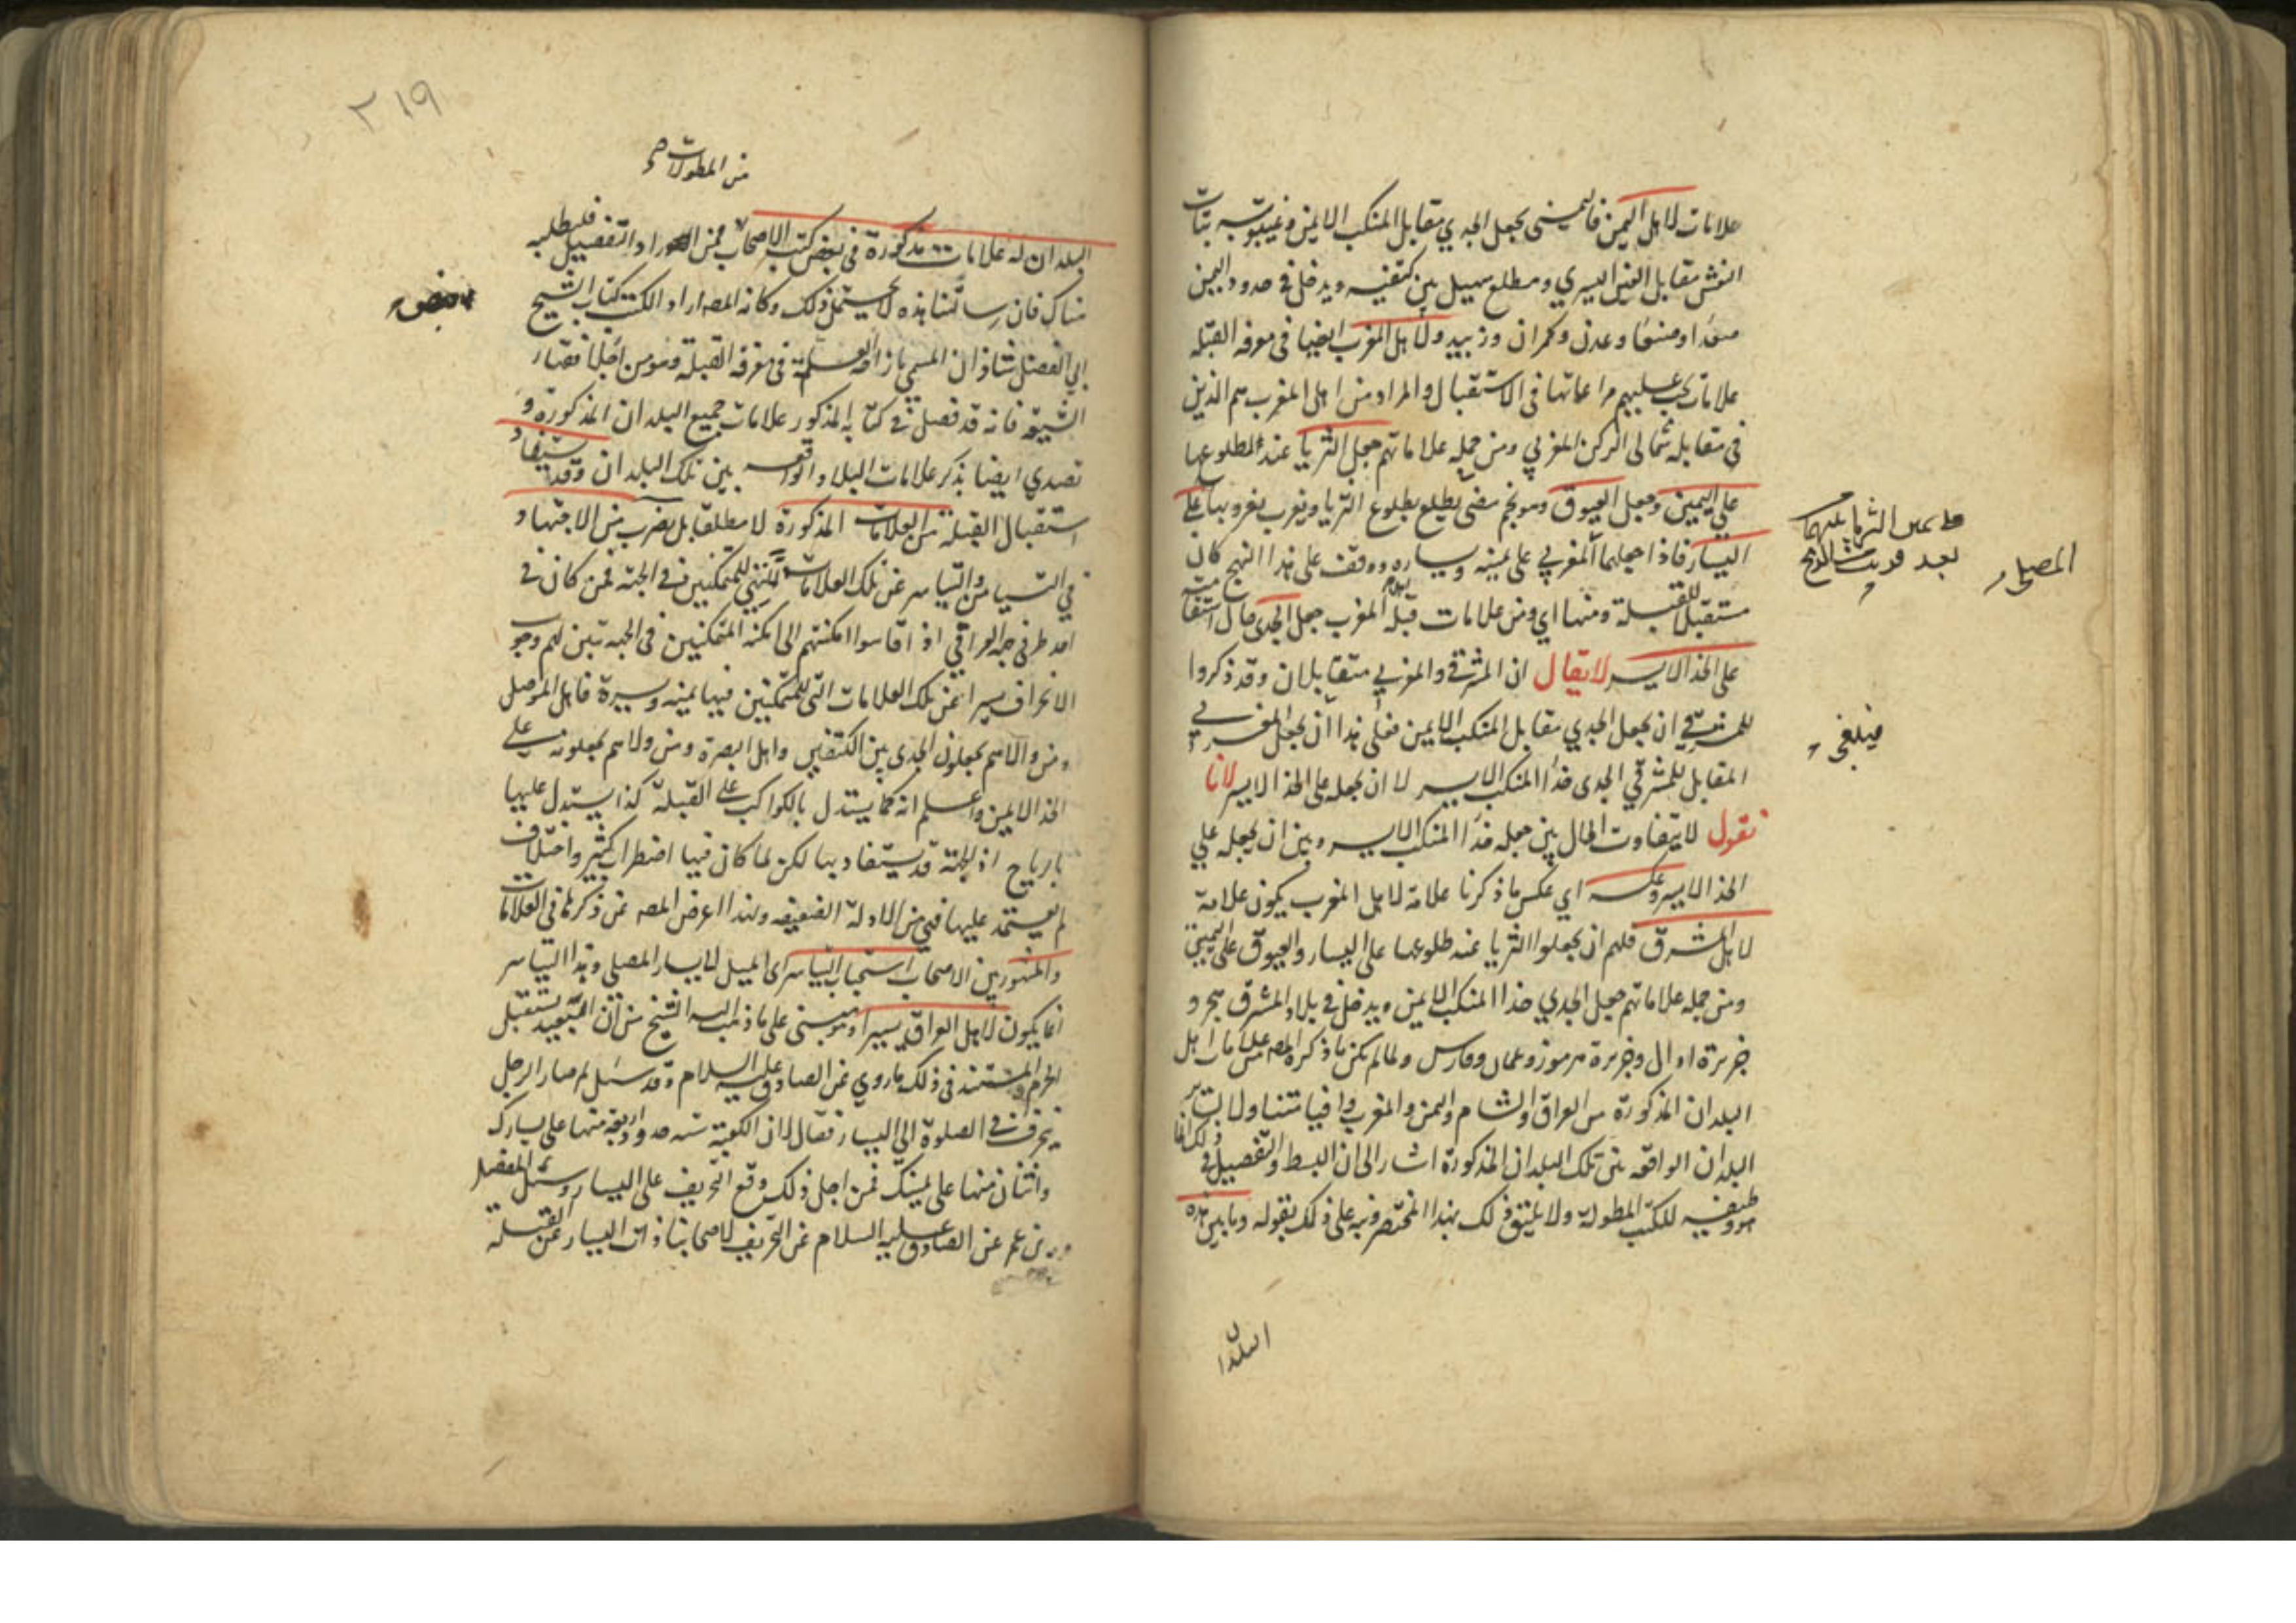 علامات لاهل اليمن فاليمنى يجعل الجدي مقابل المنكب الايمن وغيبوبته بنات
النعش مقابل العين اليسرى ومطلع سهيل بين كتفيه ويدخل في حدود اليمن
وصنعا وعدن وكمران وزبيد ولاهل المغرب ايضا في معرفه القبله
علامات يجب عليهم مراعاتها في الاستقبال والمراد من اهل المغرب هم الذين
في مقابله شمالى الركن المغربي ومن جمله علاماتهم جعل الثريا عند طلوعها
على اليمين وجعل العيوق وهو نجم مضى يطلع بطلوع الثريا ويغرب بغروبها على
اليسار فاذا جعلهما المغربي على يمينه ويساره ووقف على هذا النهج كان
مستقبل للقبلة ومنها اي ومن علامات قبلة المغرب جعل الجدى حال استقامته
على الخد الايسر لا يقال ان المشرقي والمغربي متقابلان وقد ذكروا
للمشرقي ان يجعل الجدي مقابل المنكب الايمن فعلى هذا ان يجعل المغربي
المقابل للمشرقي الجدى حذاا المنكب الايسر لا ان يجعله على الخد الايسر لانا
نقول لا يتفاوت الحال بين جعله حذاا المنكب الايسر وبين ان يجعله علي
الخد الايسر وعكسه اي عكس ما ذكرنا علامة لاهل المغرب يكون علامة
لاهل المشرق فلهم ان يجعلوا الثريا عند طلوعها على اليسار والعيوق على اليمين
ومن جمله علاماتهم جعل الجدي حذاا المنكب الايمن ويدخل في بلاد المشرق هجر و
جزيرة اوال وجزيرة هرموز وعمان وفارس ولما لم يكن ما ذكره المصه من علامات اهل
البلدان المذكورة من العراق والشام واليمن والمغرب وافيا متناولا لساير
البلدان الواقعه بين تلك البلدان المذكورة اشار الى ان البسط والتفصيل في ذلك انما
هو وظيفيه للكتب المطولة ولا يليق ذلك بهذا المختصر ونبه على ذلك بقوله وما بين هذه
البلدان
على يمين الثريا
بعد
المصلى
فينبغي
٣١٩
من المطولات
البلدان له علامات مذكورة في بعض كتب الاصحاب فمن اراد التفصيل فليطلبه
هناك فان رسالتنا هذه لا يحتمل ذلك وكانه المصه اراد الكتب كتاب الشيخ
ابي الفضل شاذان المسمي بازاحه العلة في معرفه القبلة وهو من اجلا فقهاء
الشيعة فانه قد فصل في كتابه المذكور علامات جميع البلدان المذكورة و
تصدي ايضا بذكر علامات البلاد الواقعه بين تلك البلدان وقد يستفاد
استقبال القبلة من العلامات المذكورة لا مطلقا بل بضرب من الاجتهاد
في التيامن والتياسر عن تلك العلامات التي للمتمكنين في الجهة فمن كان في
احد طرفي جهه العراقي اذا قاسوا امكنتهم الى امكنه المتمكنين في الجهه تبين لهم وجوب
الانحراف يسيرا عن تلك العلامات التى للمتمكنين فيها يمينه ويسيرة فاهل الموصل
ومن والاهم يجعلون الجدى بين الكتفين واهل البصرة ومن والاهم يجعلونه على
الخد الايمن واعلم انه كما يستدل بالكواكب على القبلة كذا يستدل عليها
بالرياح اذ الجهة قد يستفاد بها لكن لما كان فيها اضطراب كثير واختلاف
لم يعتمد عليها فهي من الادلة الضعيفه ولهذا اعرض المصه عن ذكرها في العلامات
والمشهور بين الاصحاب استحباب التياسر اى الميل لايسار المصلى وهذا التياسر
انما يكون لاهل العراق يسيرا وهو مبنى على ما ذهب اليه الشيخ من ان البعيد يستقبل
الحرم والمستند في ذلك ما روي عن الصادق عليه السلام وقد سئل لم صار الرجل
ينحرف في الصلوة الى اليسار فقال لان الكعبة ستة حدود اربعة منها على يسارك
واثنان منها على يمينك فمن اجل ذلك وقع التحريف على اليسار وسئل المفضل
بن عمر عن الصادق عليه السلام عن التحريف لاصحابنا ذات اليسار عن القبلة